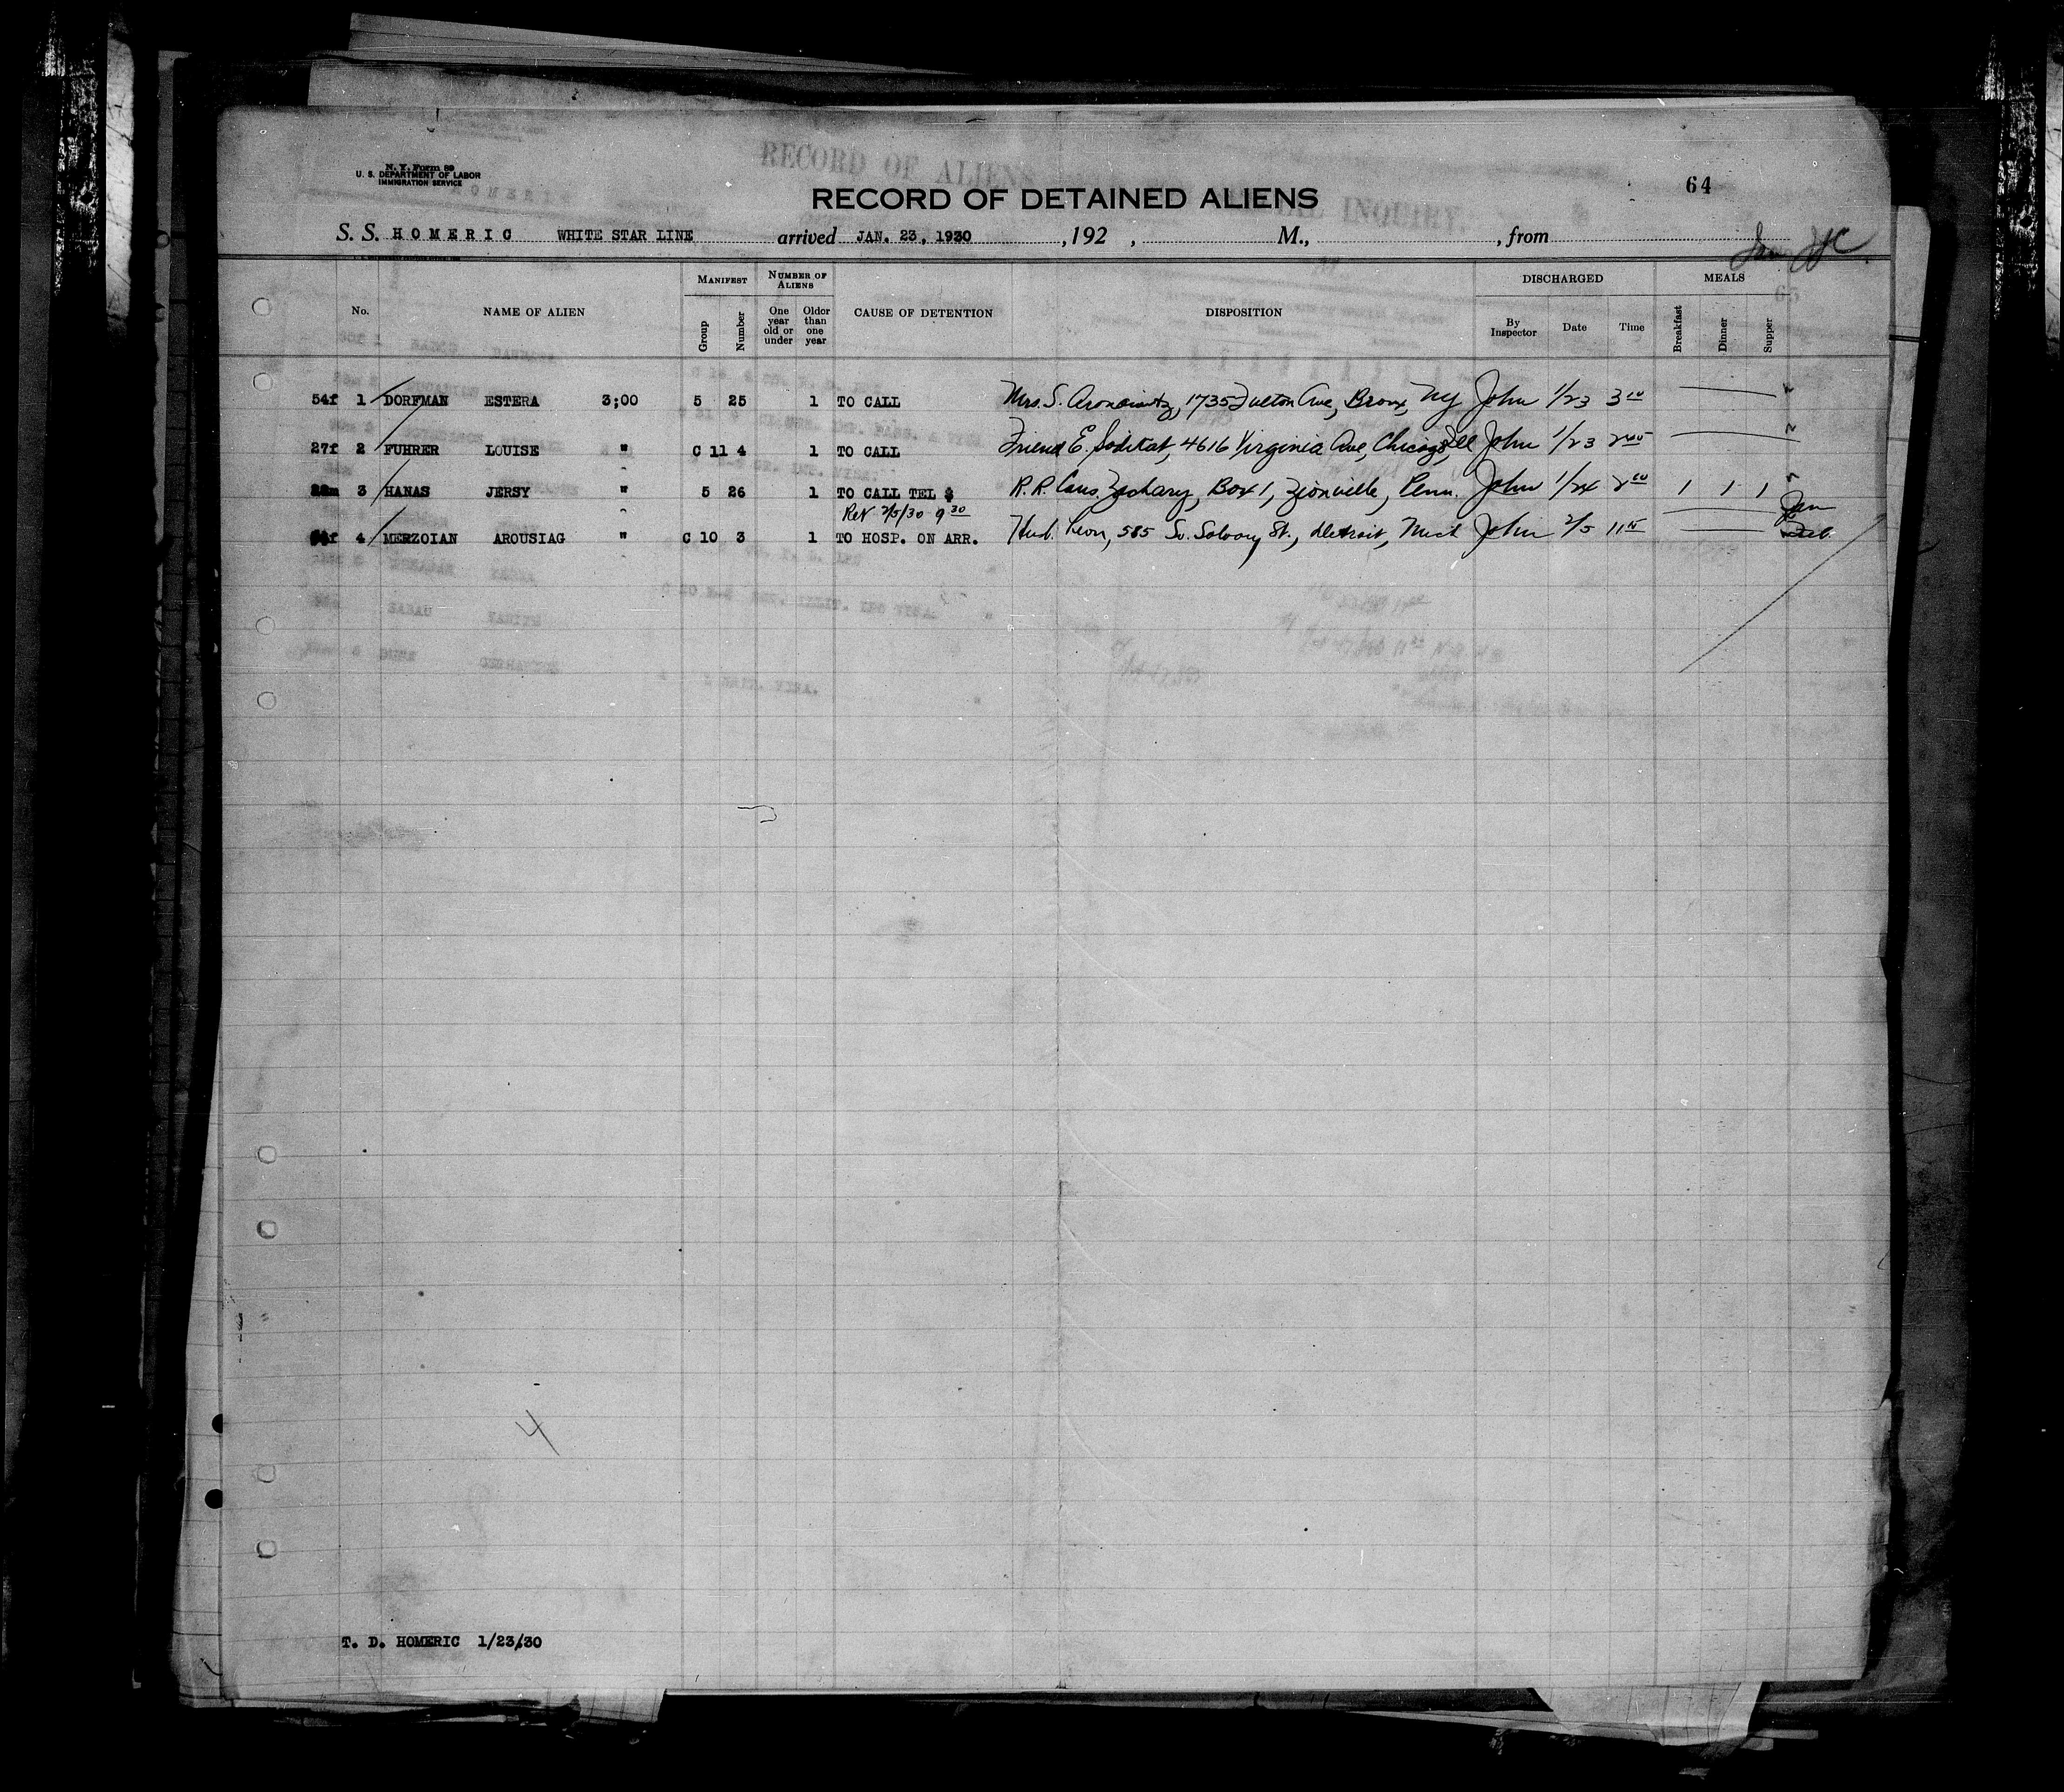 N. Y. Form 89
U. S. DEPARTMENT OF LABOR
IMMIGRATION SERVICE
64
RECORD OF DETAINED ALIENS
S. S. HOMERIC WHITE STAR LINE arrived JAN. 23, 1930 , 192 , M., , from
MANIFEST NUMBER OF ALIENS DISCHARGED MEALS
No. NAME OF ALIEN Group Number One year old or under Older than one year CAUSE OF DETENTION DISPOSITION By Inspector Date Time Breakfast Dinner Supper
54f 1 DORFMAN ESTERA 3;00 5 25 1 TO CALL Mrs. S. Aronowitz, 1735 Fulton Ave, Bronx, NY John 1/23 3 00
27f 2 FUHRER LOUISE " C 11 4 1 TO CALL Friend E. 4616 Virginia Ave, Chicago, Ill John 1/23
3 HANAS JERSY " 5 26 1 TO CALL TEL $ R.R. Cous. Zachary, Box 1, Zionville, Penn. John 1/24 2 00 1 1 1
Ret 2/5/30 9 30 Jan
4 MERZOIAN AROUSIAG " C 10 3 1 TO HOSP. ON ARR. Husb. Leon, 585 So. Solvay St., Detroit, Mich John 2/5 11 15 Feb.
4
T. D. HOMERIC 1/23/30